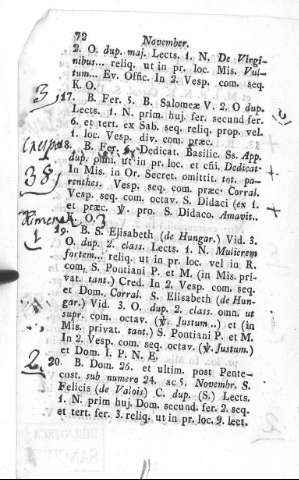 72 November.
2. O dup. maj. Lects. 1. N. De Virgi-
nibus... reliq. ut in pr. loc. Mis. Vul-
tum... Ev. Offic. In 2. Vesp. com. seq.
K. O.
3
17. B. Fer. 5. B. Salomeæ V. 2. O dup.
Lects. 1. N. prim. huj. fer. secund fer.
6. et tert. ex Sab. seq. reliq. prop. vel
1. loc. Vesp. div. com. præc.
18. B. Fer. Dedicat. Basilic. Ss. App.
38
dup. ut in pr. loc. et cñi. Dedicat-
In Mis. in Or. Secret. omittit. tot. pa-
renthes. Vesp. seq. com. præc. Corral.
Vesp. seq. com. octav. S. Didaci (ex 1.
et præc. ℣. pro. S. Didaco. Amavit..
O.
1
19. B. S. Elisabeth (de Hungar.) Vid. 3.
O. dup. 2. class. Lects. 1. N. Mulierem
fortem... reliq. ut in pr. loc. vel in R.
com. S. Pontiani P. et M. (in Mis. pri-
vat. tant.) Cred. In 2. Vesp. com. seq.
et Dom. Corral. S. Elisabeth (de Hun-
gar.) Vid. 3. O. dup. 2. class. omn. ut
supr. com. octav. (℣. Justum..) et (in
Mis. privat. tant.) S. Pontiani P. et M.
In 2. Vesp. com. seq. octav. (℣. Justum.)
et Dom. I. P. N. E.
2
20. B. Dom. 26. et ultim. post Pente-
cost. sub numero 24. ac 5. Novembr. S.
Felicis (de Valois) C. dup. (S.) Lects.
1. N. prim huj. Dom. secund. fer. 2. seq.
et tert. fer. 3. reliq. ut in pr. loc. 9. lect.
BIBLIOTECA